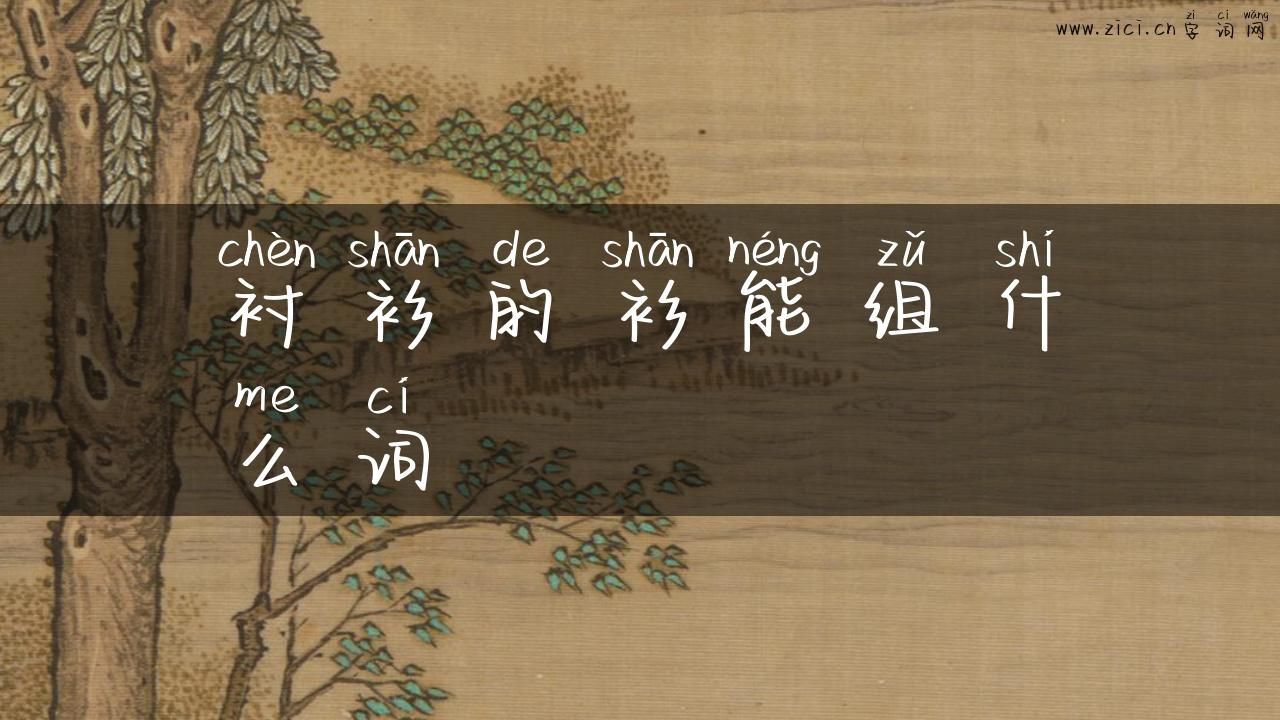 zì cí wǎng
www.zici.cn 字词网
chèn shān de shān néng zǔ shí
衬衫的衫能组什
me cí
么词